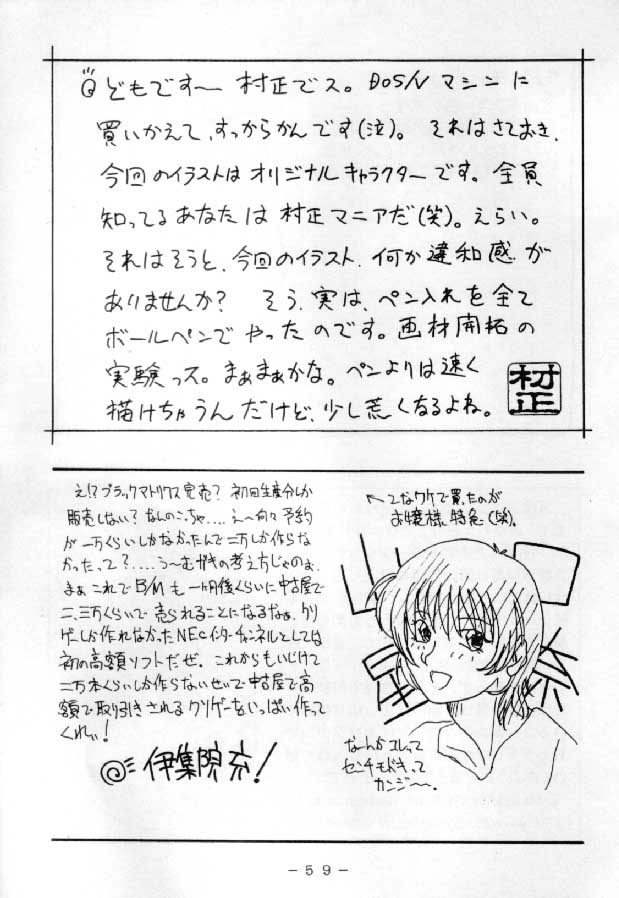 どもですー 村正でス。DOS/V マシンに
買いかえて、すっからかんです(泣)。それはさておき、
今回のイラストはオリジナルキャラクターです。全員
知ってるあなたは村正マニアだ(笑)。えらい。
それはそうと、今回のイラスト、何か違和感が
ありませんか? そう、実は、ペン入れを全て
ボールペンでやったのです。画材開拓の
実験っス。まぁまぁかな。ペンよりは速く
描けちゃうんだけど、少し荒くなるよね。
村正
え!?ブラックマトリクス完売? 初回生産分しか
販売しない? なんのこっちゃ....え〜何々予約
が一万くらいしかなかったんで二万しか作らな
かったって?....う〜むガキの考え方じゃのぉ.
まぁこれでB/Mも一ヶ月後くらいに中古屋で
二、三万くらいで売られることになるなぁ.クソ
ゲーしか作れなかったNECインターチャンネルとしては
初の高額ソフトだぜ。これからもいじけて
二万本くらいしか作らないせいで中古屋で高
額で取り引きされるクソゲーをいっぱい作って
くれぃ!
伊集院充!
←こなワケで買ったのが
お嬢様特急(笑).
なーんかコレって
センチモドキって
カンジ〜〜.
-59-